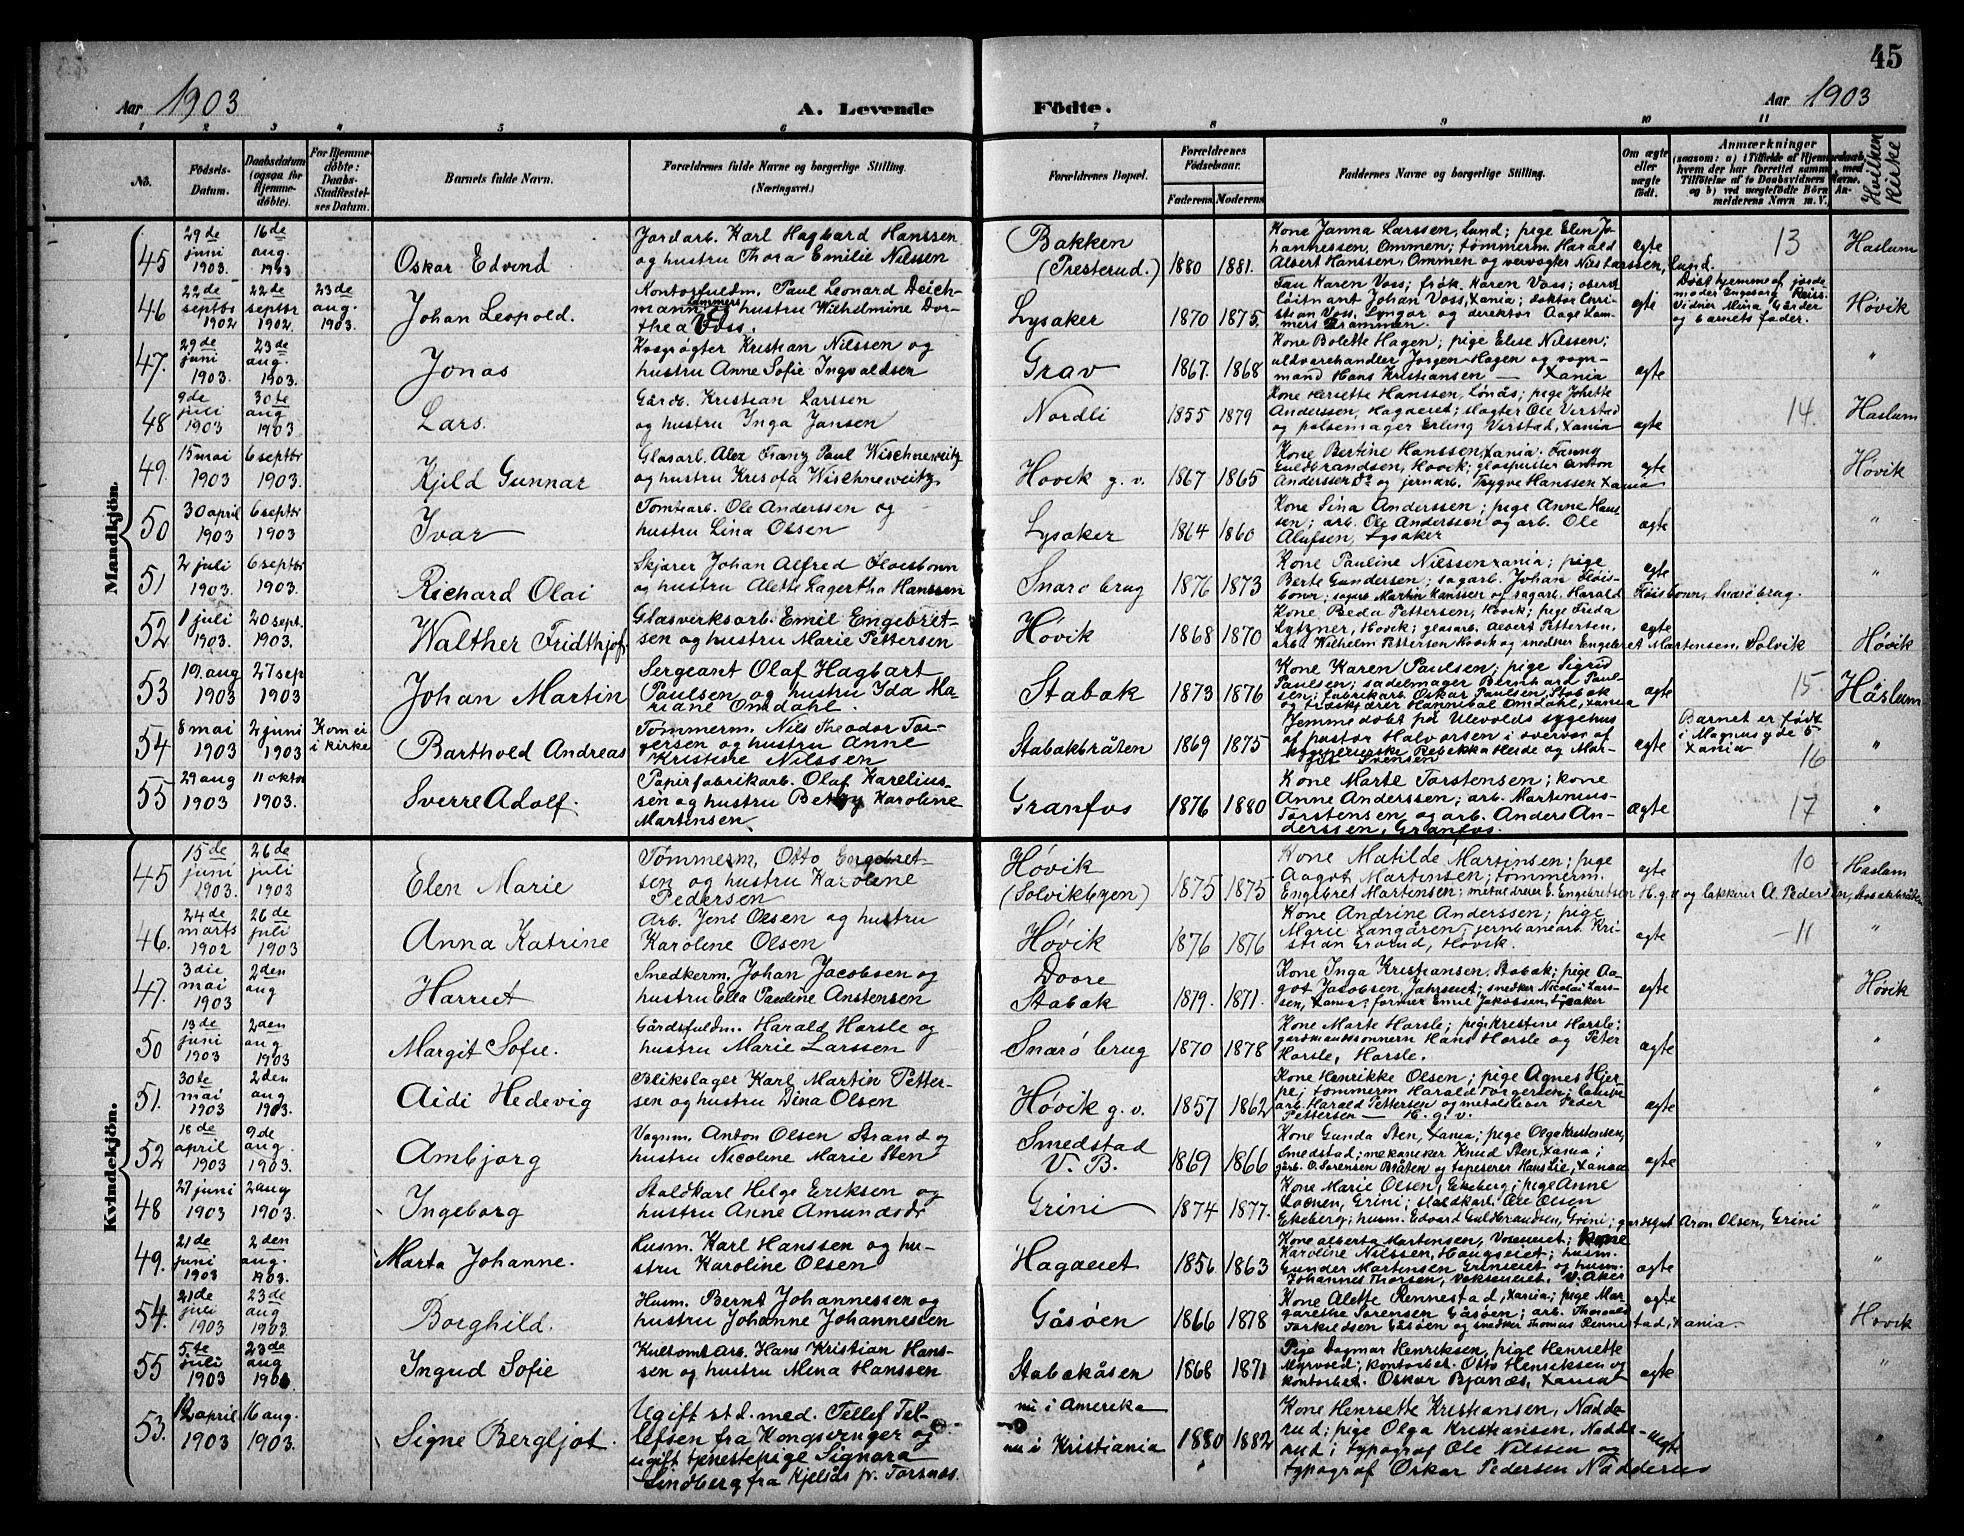 45
Aar 1903 A. Levende Födte. Aar 1903
1 2 3 4 5 6 7 8 9 10 11
No. Födsels-Datum. Daabsdatum (ogsaa for Hjemme-döbte). For Hjemme-döbte: Daabs-Stadfæstel-ses Datum. Barnets fulde Navn. Forældrenes fulde Navne og borgerlige Stilling. (Næringsvei.) Forældrenes Bopæl. Forældrenes Födselsaar. Faderens Moderens Faddernes Navne og borgerlige Stilling. Om ægte eller uægte födt. Anmærkninger Hvilken Kirke
Mandkjön.
45 29de juni 1903. 16de aug. 1903 Oskar Edvind
Jordarb. Karl Hagbard Hanssen
og hustru Thora Emilie Nilssen
Bakken (Presterud.) 1880 1881.
Kone Janna Larssen, Lund; pige Elen Jo-
hannessen, Ommen; tømmerm. Harald
Albert Hanssen, Ommen og Nils Larssen, Lund.
ægte 13 Haslum
46 22de septbr 1902 22de septbr 1902. 23de aug. 1903. Johan Leopold.
Kontorfuldm. Paul Leonard Deich-
mann og hustru Wilhelmine Dor-
thea Lammers Voss.
Lysaker 1870 1875.
Fru Karen Voss; frøk. Karen Voss; oberst
løitnant Johan Voss, Xania; doktor Cari-
stian Voss, Lyngør og direktør Aage Lam-
mers Drammen.
ægte Døbt hjemme af jorde
moder Ingeborg Reiss
Vidner Mina Gårder
og barnets fader. Høvik
47. 29de juni 1903. 23de aug. 1903. Jonas
Kristian Nilssen og
hustru Anne Sofie Ingvaldsen
Grav 1867. 1868
Kone Bolette Hagen; pige Elise Nilssen;
uldvarehandler Jørgen Hagen og vogn-
mand Hans Kristiansen — Xania
ægte "
48 9de juli 1903 30te aug 1903 Lars.
Gårdb. Kristian Larssen
og hustru Inga Jansen
Nordli 1855 1879
Kone Hanssen, Lønås; pige
Anderssen, Hagaeiet; slagter Ole Verstad
og pølsemager Erling Verstad, Xania
ægte 14. Haslum
49. 15 mai 1903 6 septbr 1903. Kjeld Gunnar
Glasarb. Alex Franz Paul Wischnewitz
og hustru Wischnewitz
Høvik g. v. 1867 1865
Kone Bertine Hanssen, Xania. Fanny
Guldbrandsen, Høvik; glaspuster Anton
Anderssen do og jernarb. Trygve Hanssen Xania
ægte Høvik
50 30 april 1903 6 septbr 1903 Ivar
Tomtearb. Ole Anderssen og
hustru Lina Olsen
Lysaker 1864 1860
Kone Sina Anderssen; pige Anne Hans-
sen; arb. Ole Anderssen og arb. Ole
Alufsen, Lysaker
ægte "
51 2 juli 1903. 6 septbr 1903. Richard Olai
Skjærer Johan Alfred Floesbonn
og hustru Alette Lagertha Hanssen
Snarø brug 1876 1873
Kone Pauline Nilssen Xania; pige
Berte Gundersen; sagarb. Johan Fløis-
bonn; sagarb. Martin Hanssen og sagarb. Harald Fløisbonn, Snarø brug.
ægte "
52 1 juli 1903. 20 sept. 1903. Walther Fridthjof
Glasverksarb. Emil Engebret-
sen og hustru Marie Pettersen
Høvik 1868 1870
Kone Beda Pettersen, Høvik; pige Frida
Lytzner, Høvik; glasarb. Albert Pettersen,
arb. Wilhelm Pettersen Høvik og snedker Engebret Martensen, Solvik
ægte Høvik
53 19. aug 1903 27 sep 1903 Johan Martin
Sergeant Olaf Hagbart
Paulsen og hustru Ida Ma-
riane Omdahl.
Stabæk 1873 1876
Kone Karen Paulsen; pige Sigrid
Paulsen; sadelmager Bernhard Paul-
sen; fabrikarb. Oskar Paulsen, Stabæk
og træskjærer Hannibal Omdahl, Xania
ægte 15 Haslum
54 8 mai 1903 2 juni 1903 Kom ei i kirke Barthold Andreas
Tømmerm. Nils Theodor Tor-
gersen og hustru Anne
Kristine Nilssen
Stabækbråten 1869 1875
Hjemmedøbt på Ulevolds sygehus
af pastor Halvorsen i overvær af
Rebekka Heide og Mar-
git Svensen
ægte Barnet er født
i Magnus gde 5
Xania 16 "
55 29 aug 1903 11 oktbr 1903. Sverre Adolf.
Papirfabrikarb. Olaf Karelius-
sen og hustru Betzy Karoline
Martensen
Granfos 1876 1880
Kone Marte Torstensen; kone
Anne Anderssen; arb. Martinius
Torstensen og arb. Anders An-
derssen, Granfos.
Ægte 17 "
Kvindekjön.
45 15de juni 1903. 26de juli 1903 Elen Marie
Tømmerm. Otto Engebret-
sen og hustru Karoline
Pedersen
Høvik (Solvikbyen) 1875 1875
Kone Matilde Martinsen; pige
Aagot Martensen; tømmerm.
Engebret Martensen; metaldreier E. Engebretsen H.g.v og lakkerer A. Pedersen, Stabækbråten
ægte 10 Haslum
46. 24de marts 1902 26de juli 1903 Anna Katrine
Arb. Jens Olsen og hustru
Karoline Olsen
Høvik 1876 1876
Kone Andrine Anderssen; pige
Marie Langåren; jernbanearb. Kri-
stian Grorud, Høvik.
ægte 11 "
47. 3die mai 1903 2den aug Harriet
Snedkerm. Johan Jacobsen og
hustru Ella Pauline Anstensen
Doore Stabæk 1879. 1871.
Kone Inga Kristiansen, Stabæk; pige Aa-
got Jacobsen, ; snedker Nicolai Lars-
sen, Xania; former Emil Jakobsen, Lysaker
ægte Høvik
50 13de juni 1903 2den aug 1903 Margit Sofie.
Gårdsfuldm. Harald Horsle og
hustru Marie Larssen
Snarø brug 1870 1878
Kone Marte Horsle; pige Kristine Horsle;
gårdmandssønnern Hans Horsle og Peter
Horsle, Horsle.
ægte "
51. 30te mai 1903 2den aug 1903. Aidi Hedevig
Blikslager Karl Martin Petter-
sen og hustru Dina Olsen
Høvik g. v. 1857 1862
Kone Henrikke Olsen; pige Agnes Hjer-
pe; tømmerm Harald Torgersen;
arb. Harald Pettersen og metalsliber Peder
Pettersen — H. g. v.
ægte "
52 18de april 1903 9de aug. 1903. Ambjørg
Vognm. Anton Olsen Strand og
hustru Nicoline Marie Sten
Smedstad V. B. 1869 1866
Kone Gunda Sten, Xania; pige Olga Kristensen,
Smedstad; mekaniker Knud Sten, Xania;
gårb. O. Sørensen Bråten og tapeserer Hans Lie, Xania
ægte "
48 27 juni 1903 2 aug 1903. Ingeborg
Staldkarl Helge Eriksen og
hustru Anne Amundsdr
Grini 1874 1877.
Kone Marie Olsen, Ekeberg; pige Anne
Loenen, Grini; staldkarl Ole Olsen
Ekeberg; husm. Edvard Guldbrandsen, Grini; gårdsgut Aron Olsen, Grini
"
49. 21de juni 1903 2den aug. 1903. Marta Johanne.
Husm. Karl Hanssen og hu-
stru Karoline Olsen
Hagaeiet 1856 1863
Kone Alberta Martensen, Voxeneiet; kone
Karoline Nilssen, Haugseiet; husm.
Gunder Martensen Grinieiet og husm.
Johannes Thorsen, Vokseneiet. V. Aker
ægte "
54. 21de juli 1903 23de aug 1903. Borghild.
Husm. Bernt Johannessen og
hustru Johanne Johannessen
Gåsøen 1866 1878
Kone Alette Rennestad, Xania; pige Mar-
garethe Sørensen Gåsøen; arb. Thorvald
Torkildsen Gåsøen og snedker Thomas Rennestad, Xania.
ægte Høvik
55 5te juli 1903 23de aug 1903 Ingrid Sofie
Kultomtarb. Hans Kristian Hans-
sen og hustru Mina Hanssen
Stabækåsen 1868 1871
Pige Dagmar Henriksen, pige Henriette
Myrvold; kontorbet. Otto Henriksen og
kontorbet. Oskar Bjanæs, Xania
ægte "
53. 12 april 1903 16 aug. 1903. Signe Bergljot.
Ugift st d. med. Tellef Tel-
lefsen fra Kongsvinger og
ugift tjenestepige Signora
Lindberg fra Kjelsås pr. Torsnæs.
nu i Amerika
nu i Kristiania 1880 1882
Kone Henriette Kristiansen, Nadde-
rud; pige Olga Kristiansen, Nadde-
rud; typograf Ole Nilssen og
typograf Oskar Pedersen Nadderud
uegte "